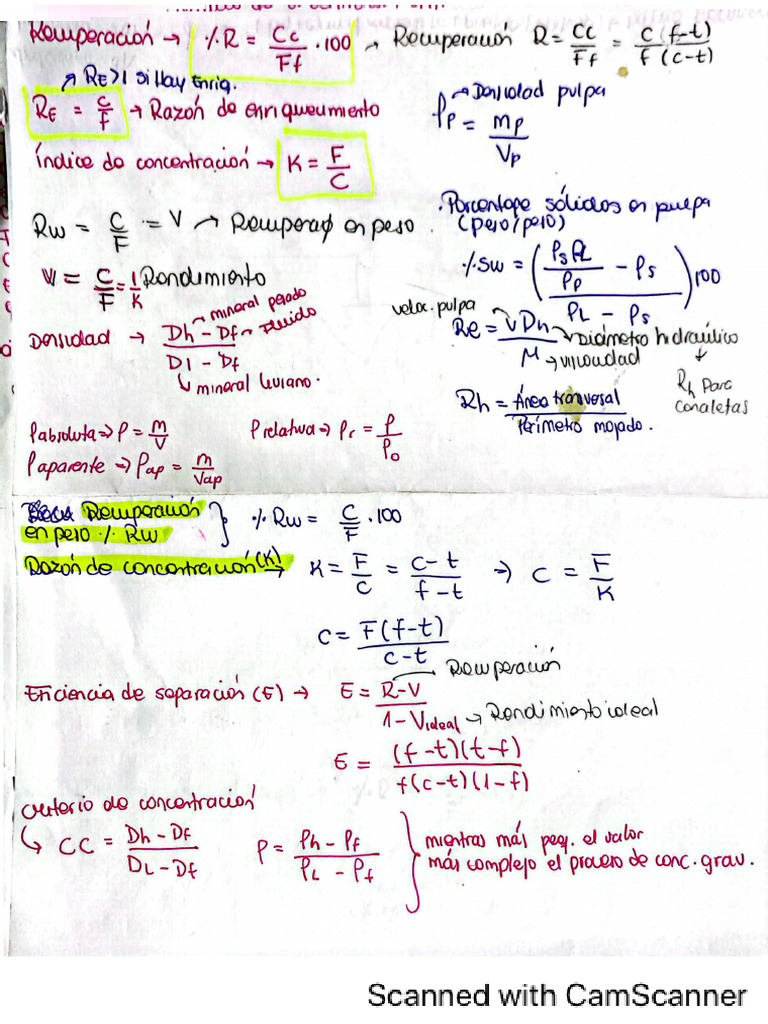 Recuperación → %R = Cc/Ff · 100 → Recuperación R = Cc/Ff = c(f-t)/f(c-t)
↗ RE>1 si Hay Enriq.
RE = c/f → Razón de enriquecimiento
→ Densidad pulpa
ρp = mp/Vp
índice de concentración → K = F/C
Rw = C/F = V → Recuperaø en peso
· Porcentaje sólidos en pulpa
(peso/peso)
%Sw = ((ρs ρL/ρp - ρs)/(ρL - ρs)) 100
V = C/F = 1/K Rendimiento
Densidad → Dh - Df/Dl - Df
→ mineral pesado
→ Fluido
↳ mineral liviano.
veloc. pulpa
Re = vDh/μ
→ Diámetro hidraúlico
→ viscosidad
↓
Rh para
canaletas
Rh = Área transversal/Perímetro mojado.
ρabsoluta ⇒ ρ = m/V ρ relativa → ρr = ρ/ρo
ρaparente → ρap = m/Vap
Recuperación
en peso % Rw } % Rw = C/F · 100
Razón de concentración (K) → K = F/C = c-t/f-t → C = F/K
C = F(f-t)/c-t
→ Recuperación
Eficiencia de separación (E) → E = R-V/1-Videal → Rendimiento ideal
E = (f-t)(t-f)/f(c-t)(1-f)
criterio de concentración
↳ CC = Dh - Df/DL - Df ρ = ρh - ρf/ρL - ρf } mientras más peq. el valor
más complejo el proceso de conc. grav.
Scanned with CamScanner